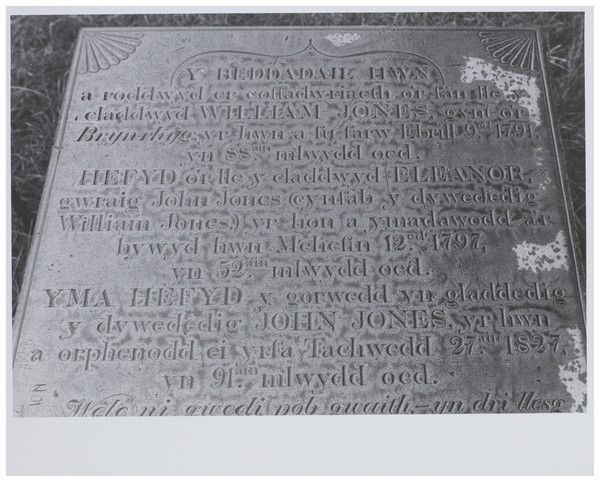 Y BEDDADAIL HWN
a roddwyd er coffadwriaeth o'r fan lle y
claddwyd WILLIAM JONES, gynt o'r
yr hwn a fu farw Ebrill 9.fed 1791.
yn 88.ain mlwydd oed.
HEFYD o'r lle y claddwyd ELEANOR,
gwraig John Jones (cynfab y dywededig
William Jones,) yr hon a ymadawodd a'r
bywyd hwn Mehefin 12.fed 1797,
yn 52.ain mlwydd oed.
YMA HEFYD y gorwedd yn gladdedig
y dywededig JOHN JONES, yr hwn
a orphenodd ei yrfa Tachwedd 27.ain 1827.
yn 91.ain mlwydd oed.
Wele ni gwedi pob gwaith—yn dri llesg